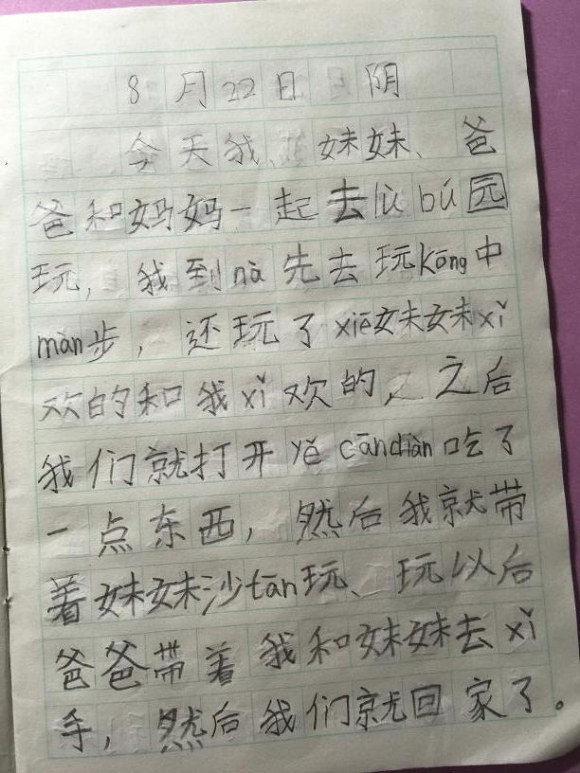 8月22日 阴
今天我、妹妹、爸
爸和妈妈一起去lù bú园
玩，我到nà先去玩kōng中
màn步，还玩了xiē妹妹xǐ
欢的和我xǐ欢的，之后
我们就打开yě cāndiàn吃了
一点东西，然后我就带
着妹妹沙tān玩、玩以后
爸爸带着我和妹妹去xǐ
手，然后我们就回家了。